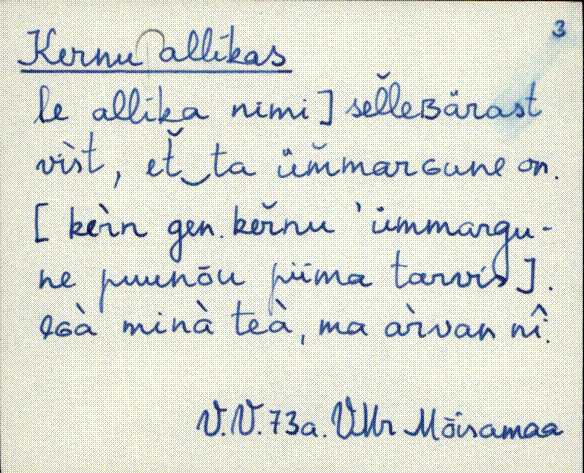 3
Kernu allikas
le allika nimi] sel̆leʙärast
vìst, et̆‿ta üm̆marɢune on.
[kèrn gen. ker̆nu 'ümmargu-
ne puunõu piima tarvis].
eɢà minà teà, ma àrvan nî.
V.V. 73a. VMr Mõisamaa